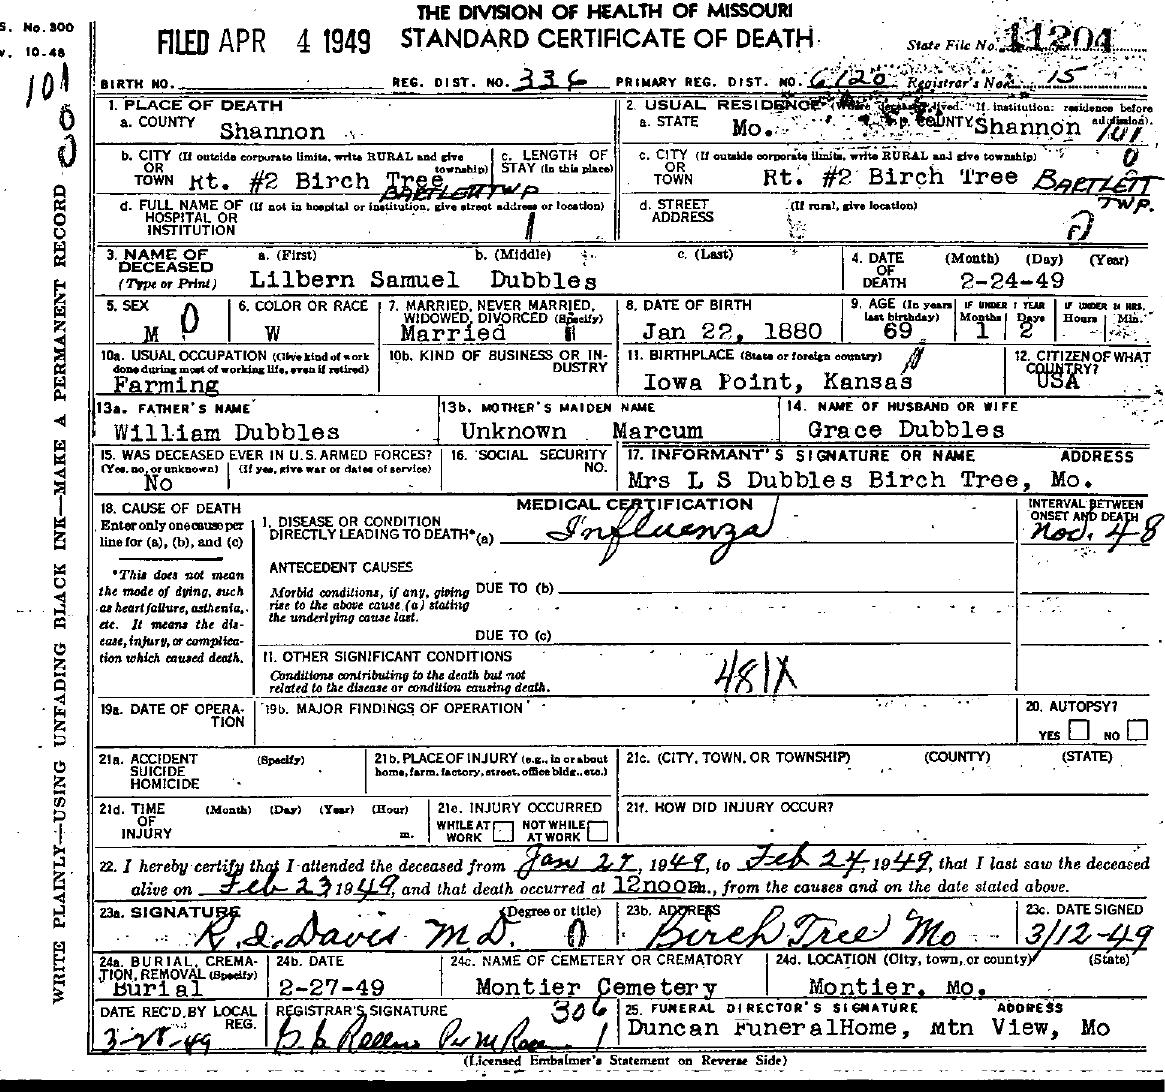 THE DIVISION OF HEALTH OF MISSOURI
S. No. 300
v. 10-48
FILED APR 4 1949 STANDARD CERTIFICATE OF DEATH State File No. 11204
101
BIRTH NO. REG. DIST. NO. 336 PRIMARY REG. DIST. NO. 6120 Registrar's No. 15
1. PLACE OF DEATH
a. COUNTY Shannon
2. USUAL RESIDENCE (Where deceased lived. If institution: residence before admission).
a. STATE Mo. b. COUNTY Shannon 101
b. CITY (If outside corporate limits, write RURAL and give township)
OR
TOWN Rt. #2 Birch Tree
BARTLETT TWP
c. LENGTH OF STAY (in this place)
c. CITY (If outside corporate limits, write RURAL and give township) 0
OR
TOWN Rt. #2 Birch Tree BARTLETT TWP.
d. FULL NAME OF (If not in hospital or institution, give street address or location)
HOSPITAL OR
INSTITUTION 1
d. STREET ADDRESS (If rural, give location)
3. NAME OF DECEASED (Type or Print) a. (First) b. (Middle) c. (Last)
Lilbern Samuel Dubbles
4. DATE OF DEATH (Month) (Day) (Year)
2-24-49
5. SEX M 0
6. COLOR OR RACE W
7. MARRIED, NEVER MARRIED, WIDOWED, DIVORCED (Specify)
Married 1
8. DATE OF BIRTH
Jan 22, 1880
9. AGE (In years last birthday) 69
IF UNDER 1 YEAR Months 1 Days 2
IF UNDER 24 HRS. Hours Min.
10a. USUAL OCCUPATION (Give kind of work done during most of working life, even if retired)
Farming
10b. KIND OF BUSINESS OR INDUSTRY
11. BIRTHPLACE (State or foreign country)
Iowa Point, Kansas
12. CITIZEN OF WHAT COUNTRY?
USA
13a. FATHER'S NAME
William Dubbles
13b. MOTHER'S MAIDEN NAME
Unknown Marcum
14. NAME OF HUSBAND OR WIFE
Grace Dubbles
15. WAS DECEASED EVER IN U.S. ARMED FORCES?
(Yes, no, or unknown) (If yes, give war or dates of service)
No
16. SOCIAL SECURITY NO.
17. INFORMANT'S SIGNATURE OR NAME ADDRESS
Mrs L S Dubbles Birch Tree, Mo.
18. CAUSE OF DEATH
Enter only one cause per line for (a), (b), and (c)
*This does not mean the mode of dying, such as heart failure, asthenia, etc. It means the disease, injury, or complication which caused death.
MEDICAL CERTIFICATION
I. DISEASE OR CONDITION
DIRECTLY LEADING TO DEATH*(a) Influenza
INTERVAL BETWEEN ONSET AND DEATH
Nov. 48
ANTECEDENT CAUSES
Morbid conditions, if any, giving rise to the above cause (a) stating the underlying cause last.
DUE TO (b)
DUE TO (c)
II. OTHER SIGNIFICANT CONDITIONS
Conditions contributing to the death but not related to the disease or condition causing death.
481X
19a. DATE OF OPERATION
19b. MAJOR FINDINGS OF OPERATION
20. AUTOPSY?
YES NO
21a. ACCIDENT SUICIDE HOMICIDE (Specify)
21b. PLACE OF INJURY (e.g., in or about home, farm, factory, street, office bldg., etc.)
21c. (CITY, TOWN, OR TOWNSHIP) (COUNTY) (STATE)
21d. TIME OF INJURY (Month) (Day) (Year) (Hour) m.
21e. INJURY OCCURRED
WHILE AT WORK NOT WHILE AT WORK
21f. HOW DID INJURY OCCUR?
22. I hereby certify that I attended the deceased from Jan 27, 1949, to Feb 24, 1949, that I last saw the deceased
alive on Feb 23 1949, and that death occurred at 12noon m., from the causes and on the date stated above.
23a. SIGNATURE (Degree or title)
Davis M.D. 0
23b. ADDRESS
Birch Tree Mo
23c. DATE SIGNED
3/12-49
24a. BURIAL, CREMATION, REMOVAL (Specify)
Burial
24b. DATE
2-27-49
24c. NAME OF CEMETERY OR CREMATORY
Montier Cemetery
24d. LOCATION (City, town, or county) (State)
Montier. Mo.
DATE REC'D BY LOCAL REG.
3-28-49
REGISTRAR'S SIGNATURE 306
25. FUNERAL DIRECTOR'S SIGNATURE ADDRESS
Duncan FuneralHome, Mtn View, Mo
(Licensed Embalmer's Statement on Reverse Side)
WRITE PLAINLY—USING UNFADING BLACK INK—MAKE A PERMANENT RECORD